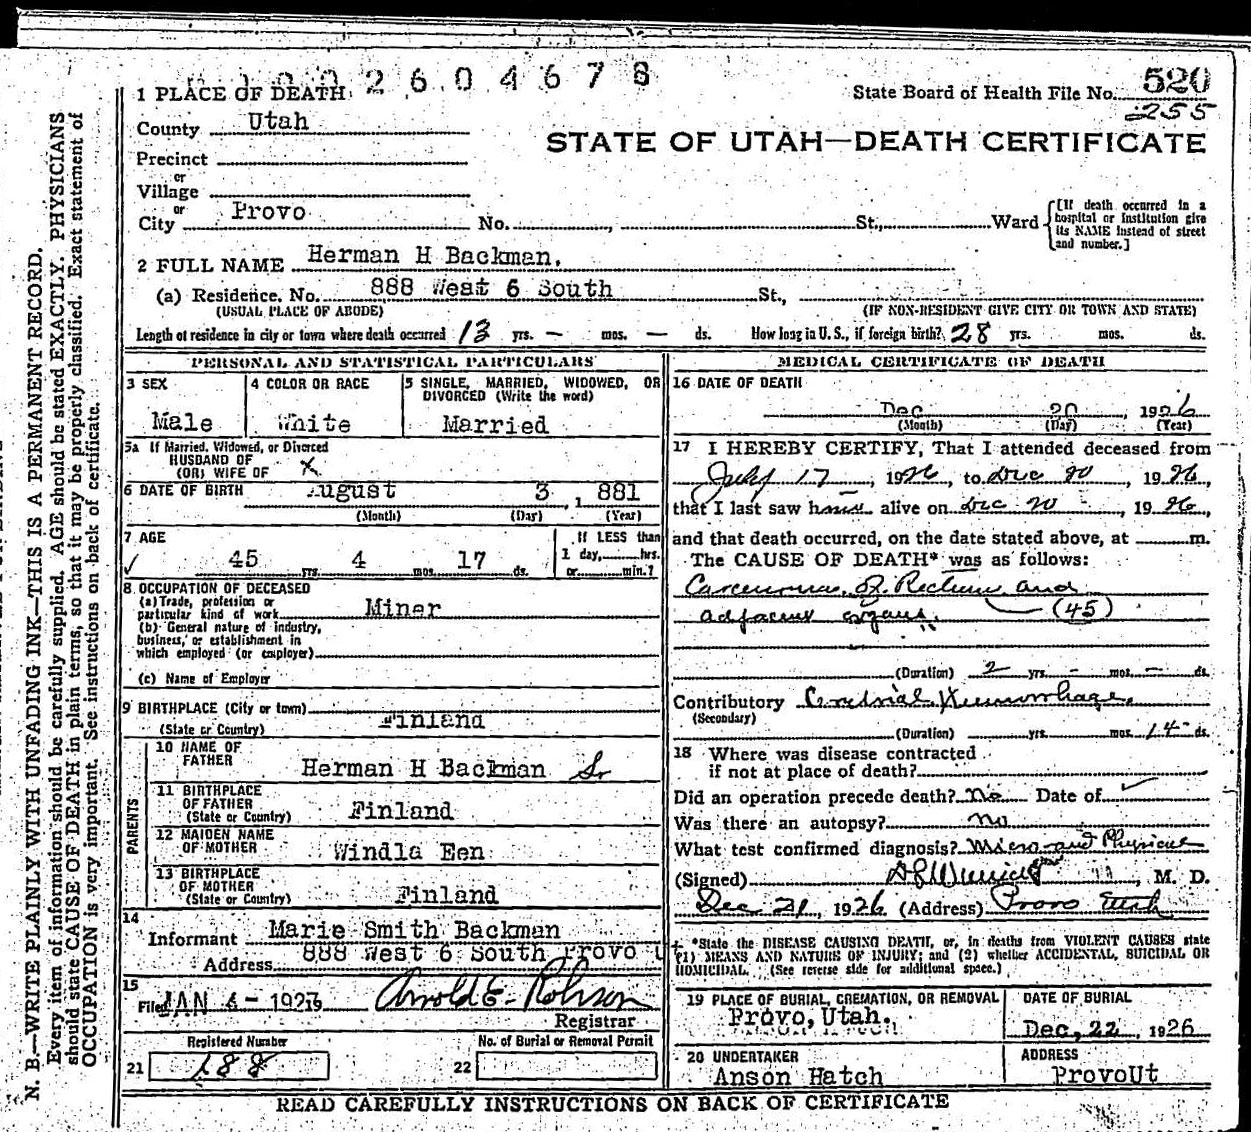 1 PLACE OF DEATH
2604678
State Board of Health File No. 520
255
County Utah
STATE OF UTAH—DEATH CERTIFICATE
Precinct
or
Village
or
City Provo No. , St., Ward
[If death occurred in a hospital or institution give its NAME instead of street and number.]
2 FULL NAME Herman H Backman.
(a) Residence. No. 888 West 6 South St.,
(USUAL PLACE OF ABODE) (IF NON-RESIDENT GIVE CITY OR TOWN AND STATE)
Length of residence in city or town where death occurred 13 yrs. — mos. — ds. How long in U.S., if foreign birth? 28 yrs. mos. ds.
PERSONAL AND STATISTICAL PARTICULARS
3 SEX
Male
4 COLOR OR RACE
White
5 SINGLE, MARRIED, WIDOWED, OR
DIVORCED (Write the word)
Married
5a If Married, Widowed, or Divorced
HUSBAND OF
(OR) WIFE OF X
6 DATE OF BIRTH August 3, 1881
(Month) (Day) (Year)
7 AGE
45 yrs. 4 mos. 17 ds.
If LESS than
1 day, hrs.
or min.?
8 OCCUPATION OF DECEASED
(a) Trade, profession or
particular kind of work Miner
(b) General nature of industry,
business, or establishment in
which employed (or employer)
(c) Name of Employer
9 BIRTHPLACE (City or town)
(State or Country) Finland
PARENTS
10 NAME OF
FATHER Herman H Backman Sr
11 BIRTHPLACE
OF FATHER
(State or Country) Finland
12 MAIDEN NAME
OF MOTHER Windla Een
13 BIRTHPLACE
OF MOTHER
(State or Country) Finland
14
Informant Marie Smith Backman
Address 888 West 6 South Provo U
15
Filed JAN 4 - 1927 Arnold E. Robison
Registrar
Registered Number No. of Burial or Removal Permit
21 188 22
MEDICAL CERTIFICATE OF DEATH
16 DATE OF DEATH
Dec 20, 1926
(Month) (Day) (Year)
17 I HEREBY CERTIFY, That I attended deceased from
July 17, 1926, to Dec 20 1926,
that I last saw h alive on Dec 20 - , 1926,
and that death occurred, on the date stated above, at m.
The CAUSE OF DEATH* was as follows:
Carcenoma of Rectum and
adjacent organs. (45)
(Duration) 2 yrs. - mos. - ds.
Contributory Cerebral Hemorrhage.
(Secondary)
(Duration) yrs. mos. 14 ds.
18 Where was disease contracted
if not at place of death?
Did an operation precede death? No Date of
Was there an autopsy? no
What test confirmed diagnosis? Micro and Physical
(Signed) , M. D.
Dec 21, 1926 (Address) Provo Utah
*State the DISEASE CAUSING DEATH, or, in deaths from VIOLENT CAUSES state
(1) MEANS AND NATURE OF INJURY; and (2) whether ACCIDENTAL, SUICIDAL OR
HOMICIDAL. (See reverse side for additional space.)
19 PLACE OF BURIAL, CREMATION, OR REMOVAL
Provo, Utah.
DATE OF BURIAL
Dec, 22, 1926
20 UNDERTAKER
Anson Hatch
ADDRESS
ProvoUt
READ CAREFULLY INSTRUCTIONS ON BACK OF CERTIFICATE
N. B.—WRITE PLAINLY WITH UNFADING INK—THIS IS A PERMANENT RECORD.
Every item of information should be carefully supplied. AGE should be stated EXACTLY. PHYSICIANS
should state CAUSE OF DEATH in plain terms, so that it may be properly classified. Exact statement of
OCCUPATION is very important. See instructions on back of certificate.